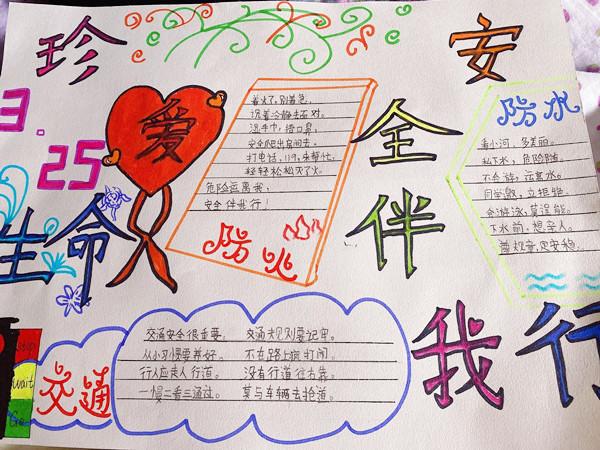 珍爱生命
安全伴我行
3.25
着火了,别着急,
沉着冷静去面对。
湿毛巾,捂口鼻,
安全爬出房间去。
打电话,119,来帮忙,
轻轻松松灭了火。
危险远离我,
安全伴我行!
防火
防水
看小河,多美丽。
私下水,危险酷。
不会游,远离水。
同学邀,立拒绝。
会游泳,莫逞能。
下水前,想亲人。
遵规章,定安稳。
stop
wait
交通
交通安全很重要,交通规则要记牢。
从小习惯要养好,不在路上打闹。
行人应走人行道,没有行道往右靠。
一慢二看三通过,莫与车辆去抢道。